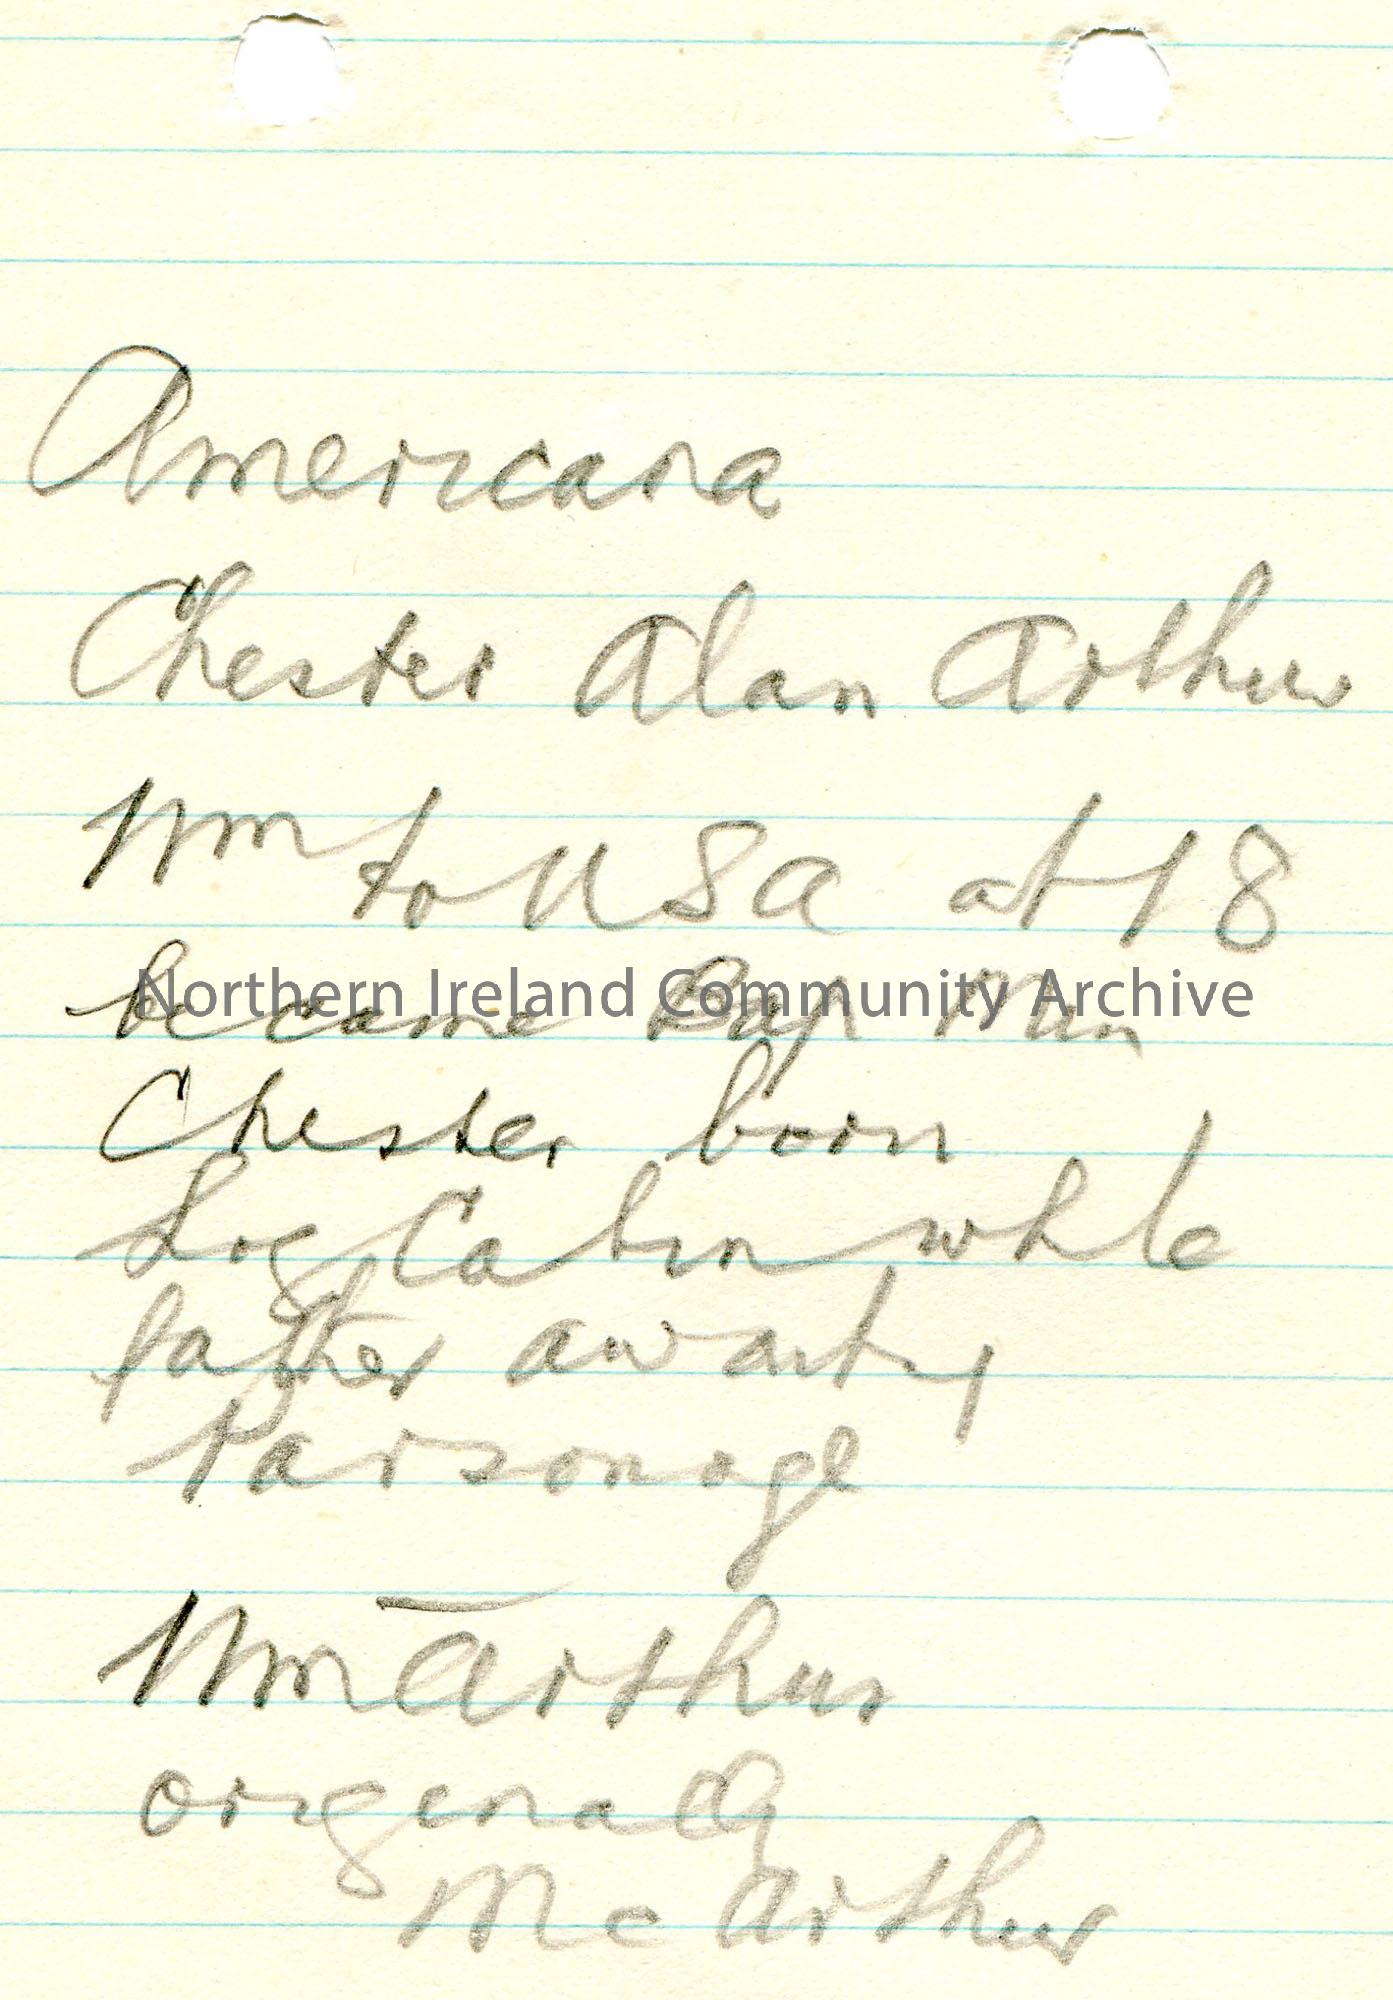 Americana
Chester Alan Arthur
Wm to USA at 18
Northern Ireland Community Archive
became Bap Min
Chester born
Log Cabin while
father awaiting
Parsonage
Wm Arthur
originally
McArthur